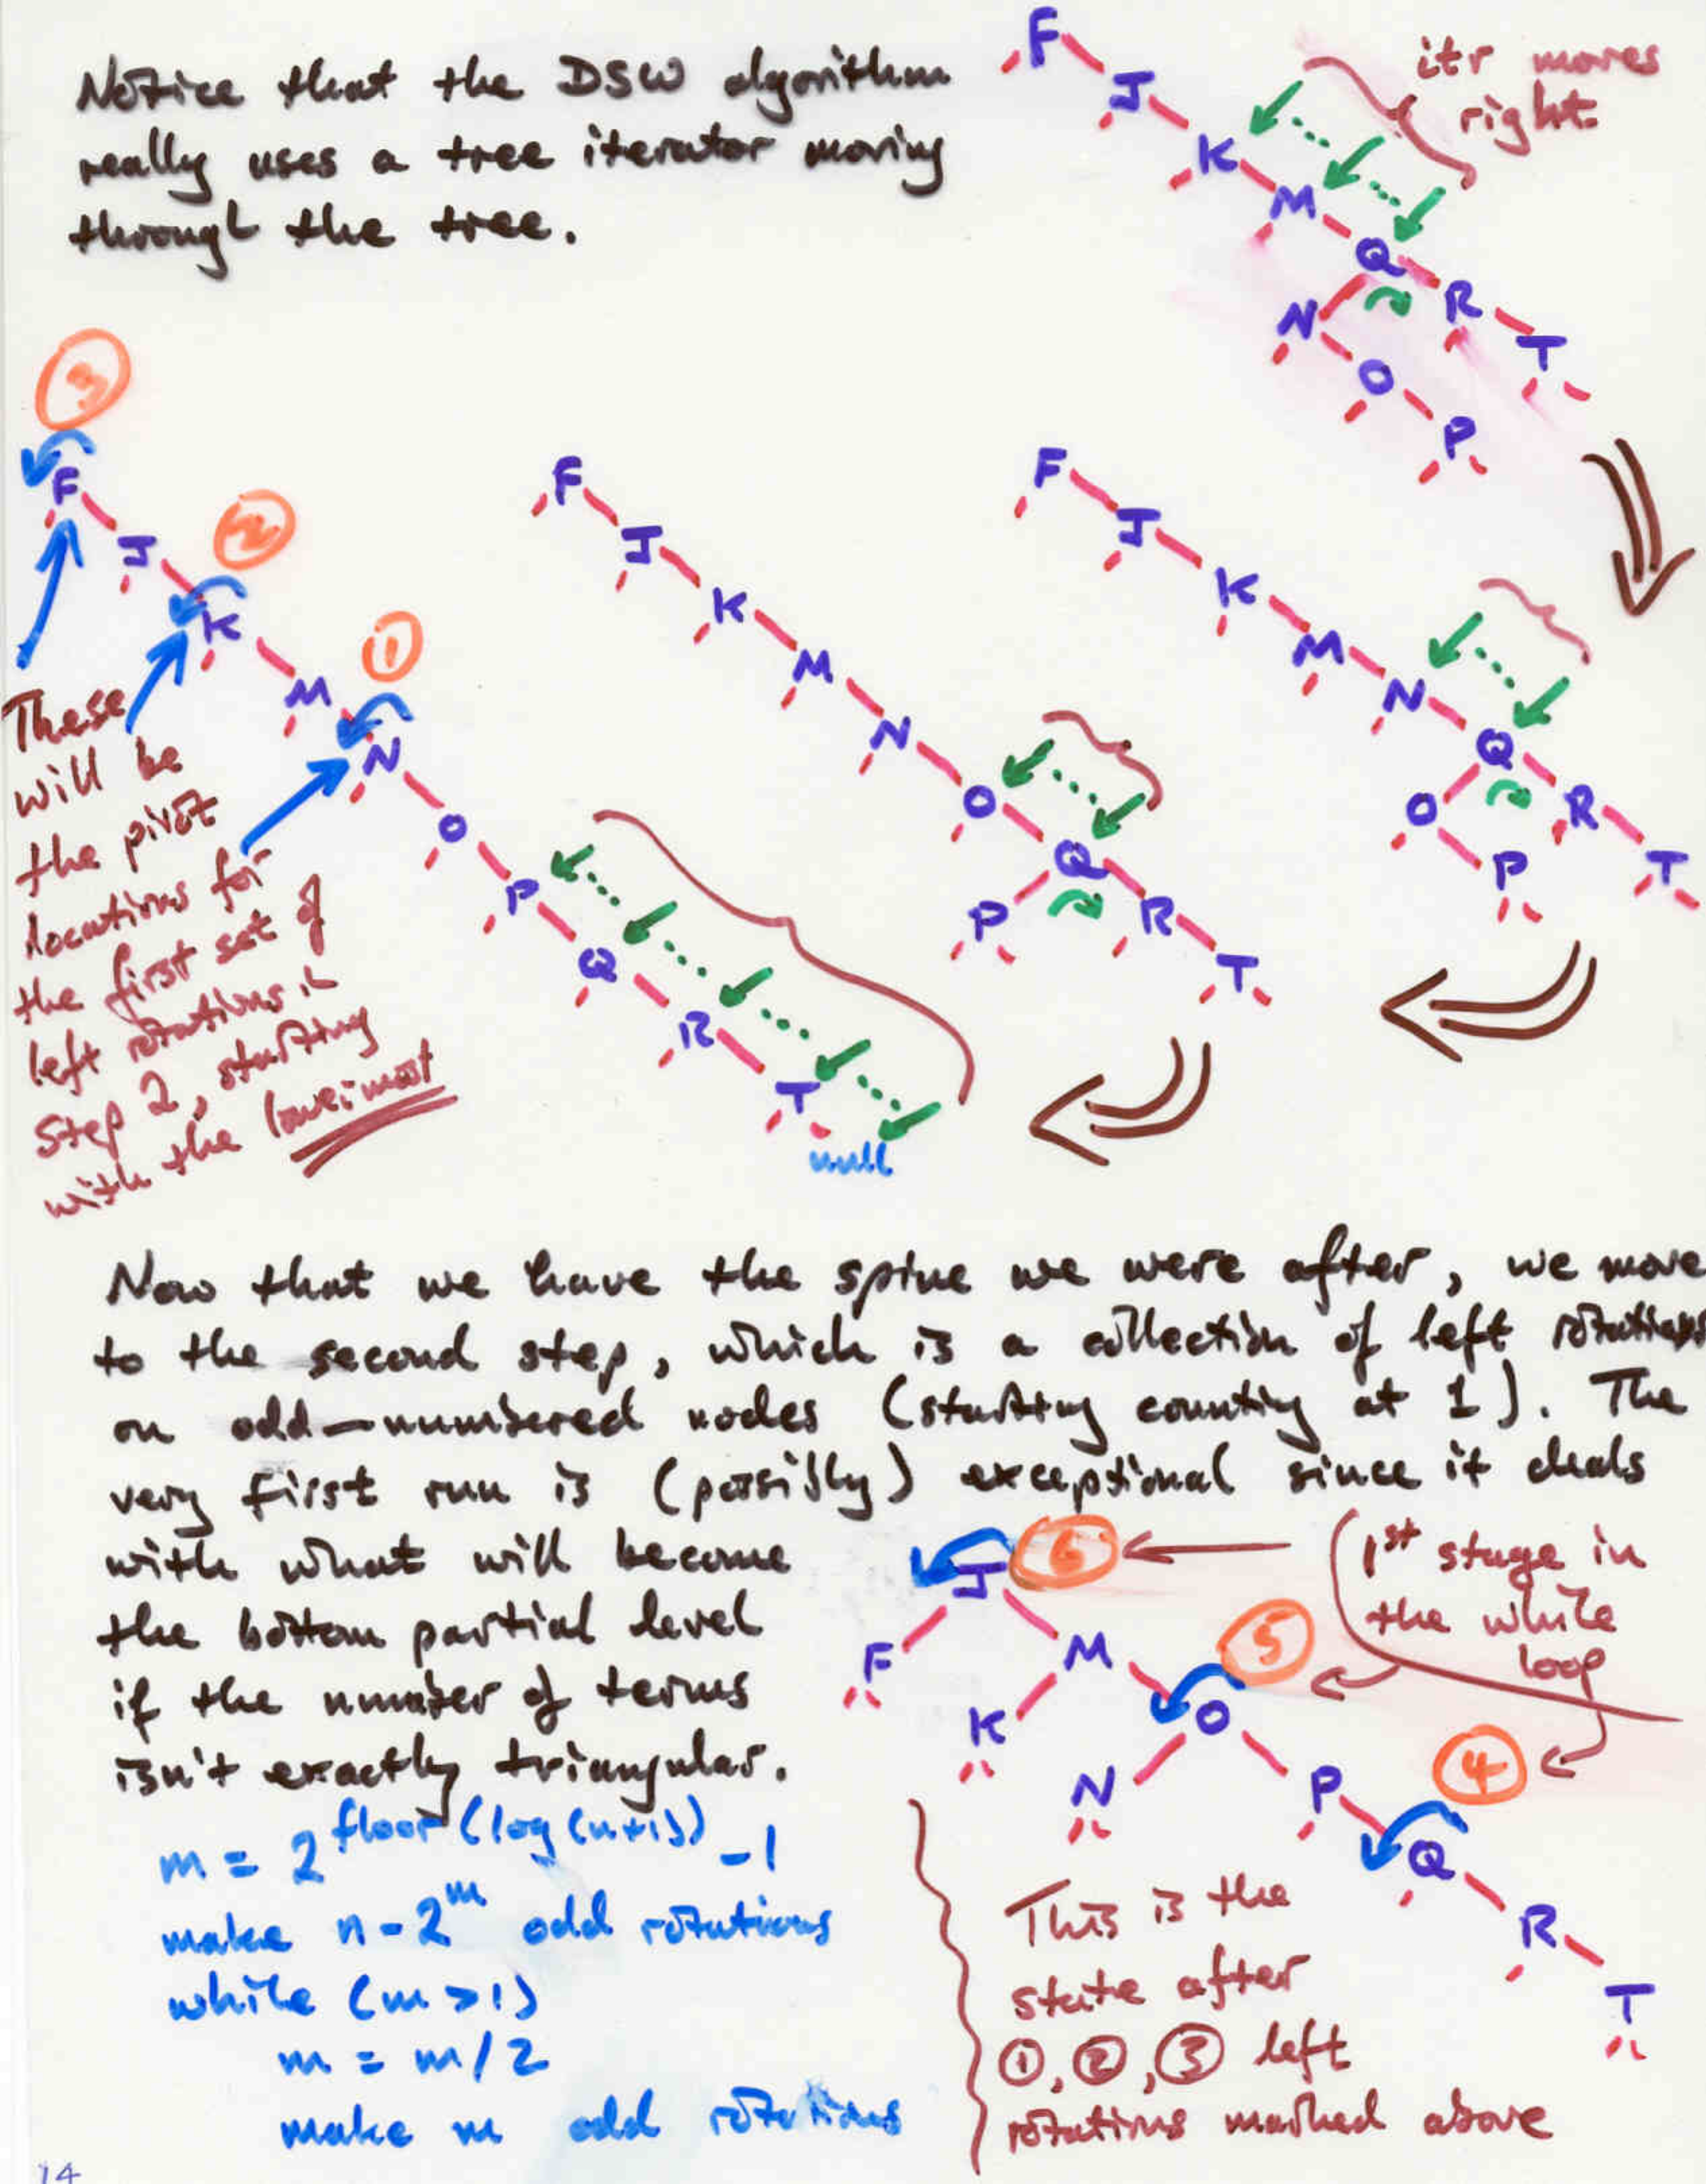 Notice that the DSW algorithm
really uses a tree iterator moving
through the tree.
itr moves
right
F
J
K
M
Q
N
R
T
O
P
3
F
J
2
K
1
M
N
O
P
Q
R
T
null
These
will be
the pivot
locations for
the first set of
left rotations in
Step 2, starting
with the lowermost
F
J
K
M
N
O
Q
P
R
T
F
J
K
M
N
Q
O
R
P
T
Now that we have the spine we were after, we move
to the second step, which is a collection of left rotations
on odd-numbered nodes (starting counting at 1). The
very first run is (possibly) exceptional since it deals
with what will become
the bottom partial level
if the number of terms
isn't exactly triangular.
m = 2^floor(log(n+1)) - 1
make n - 2^m odd rotations
while (m > 1)
m = m/2
make m odd rotations
J
6
1st stage in
the while
loop
F
M
5
K
O
4
N
P
Q
R
T
This is the
state after
①, ②, ③ left
rotations marked above
14